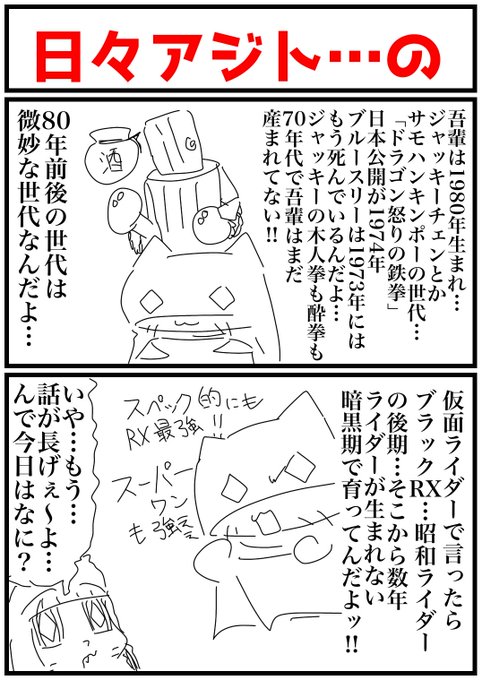 日々アジト…の
吾輩は1980年生まれ…
ジャッキーチェンとか
サモハンキンポーの世代…
「ドラゴン怒りの鉄拳」
日本公開が1974年
ブルースリーは1973年には
もう死んでいるんだよ…
ジャッキーの木人拳も酔拳も
70年代で吾輩はまだ
産まれてない!!
酒
80年前後の世代は
微妙な世代なんだよ…
仮面ライダーで言ったら
ブラックRX…昭和ライダー
の後期…そこから数年
ライダーが生まれない
暗黒期で育ってんだよッ!!
スペック的にも
RX最強!!
スーパー
ワン
も強ぇ
いや…もう…
話が長げぇ〜よ…
んで今日はなに?